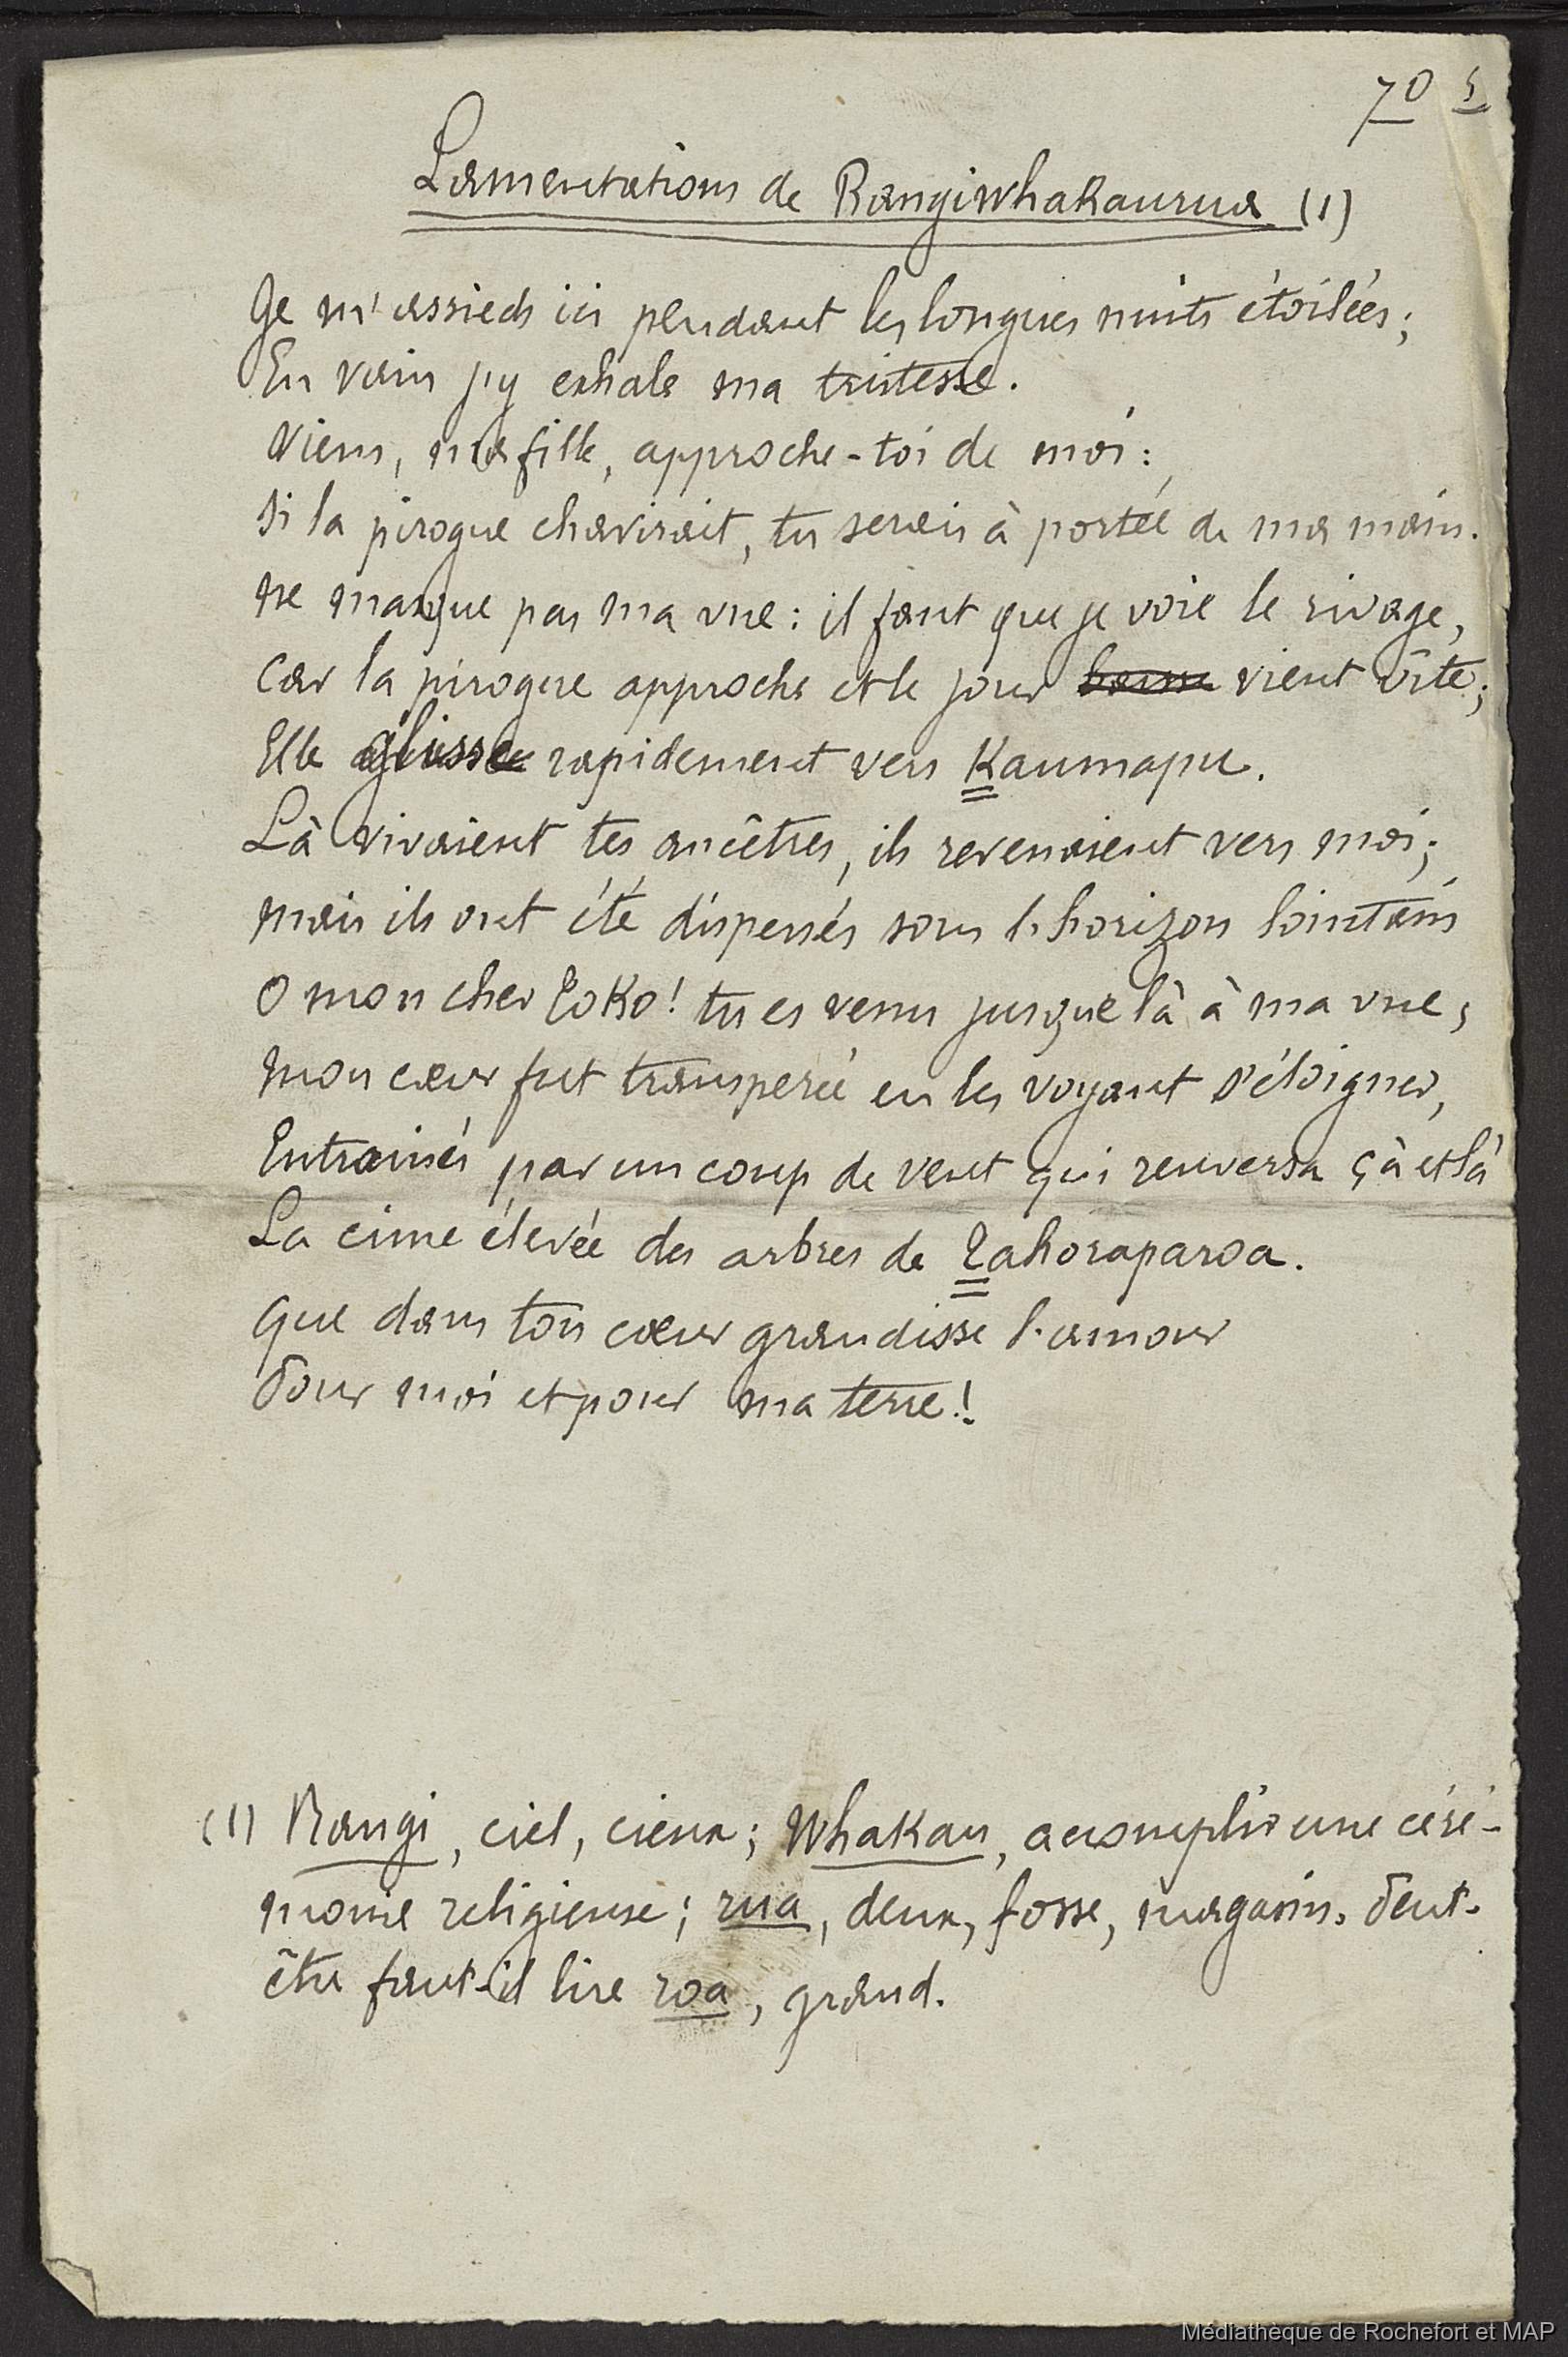 70 5
Lamentations de Rangiwhakaurua (1)
Je m'assieds ici pendant les longues nuits étoilées;
En vain j'y exhale ma tristesse.
Viens, ma fille, approche-toi de moi:
Si la pirogue chavirait, tu serais à portée de ma main.
Ne masque pas ma vue: il faut que je voie le rivage,
Car la pirogue approche et le jour baisse vient vite;
Elle glisse rapidement vers Kaumapu.
Là vivaient tes ancêtres, ils revenaient vers moi;
Mais ils ont été dispersés sous l'horizon lointain
O mon cher Toko! tu es venu jusque là à ma vue;
Mon cœur fut transpercé en les voyant s'éloigner,
Entrainés par un coup de vent qui renversa çà et là
La cime élevée des arbres de Tahoraparoa.
Que dans ton cœur grandisse l'amour
Pour moi et pour ma terre!
(1) Rangi, ciel, cieux; Whakau, accomplir une céré-
monie religieuse; rua, deux, fosse, magasin. Peut-
être faut-il lire roa, grand.
Médiathèque de Rochefort et MAP